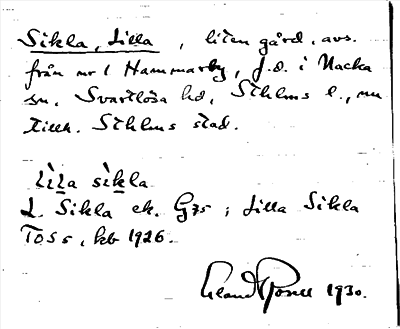 Sikla, Lilla, liten gård, avs.
från nr 1 Hammarby, f.d. i Nacka
sn, Svartlösa hd, Sthlms l., nu
tillh. Sthlms stad.
lìlla sìkla
L. Sikla ek. G35; Lilla Sikla
Toss, kb 1926.
1930.